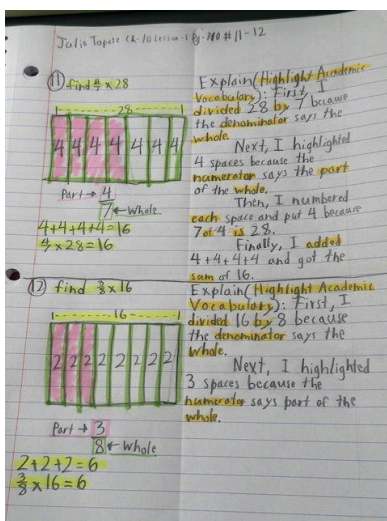 Julio Topete Ch-10 Lesson-1 Pg-710 #11-12
11 find 4/7 x 28
28
4 4 4 4 4 4 4
Part → 4
7 ← Whole
4+4+4+4=16
4/7 x 28=16
Explain (Highlight Academic
Vocabulary): First, I
divided 28 by 7 because
the denominator says the
whole.
Next, I highlighted
4 spaces because the
numerator says the part
of the whole.
Then, I numbered
each space and put 4 because
7 of 4 is 28.
Finally, I added
4+4+4+4 and got the
sum of 16.
12 find 3/8 x 16
16
2 2 2 2 2 2 2 2
Part → 3
8 ← Whole
2+2+2=6
3/8 x 16=6
Explain (Highlight Academic
Vocabulary): First, I
divided 16 by 8 because
the denominator says the
whole.
Next, I highlighted
3 spaces because the
numerator says part of the
whole.